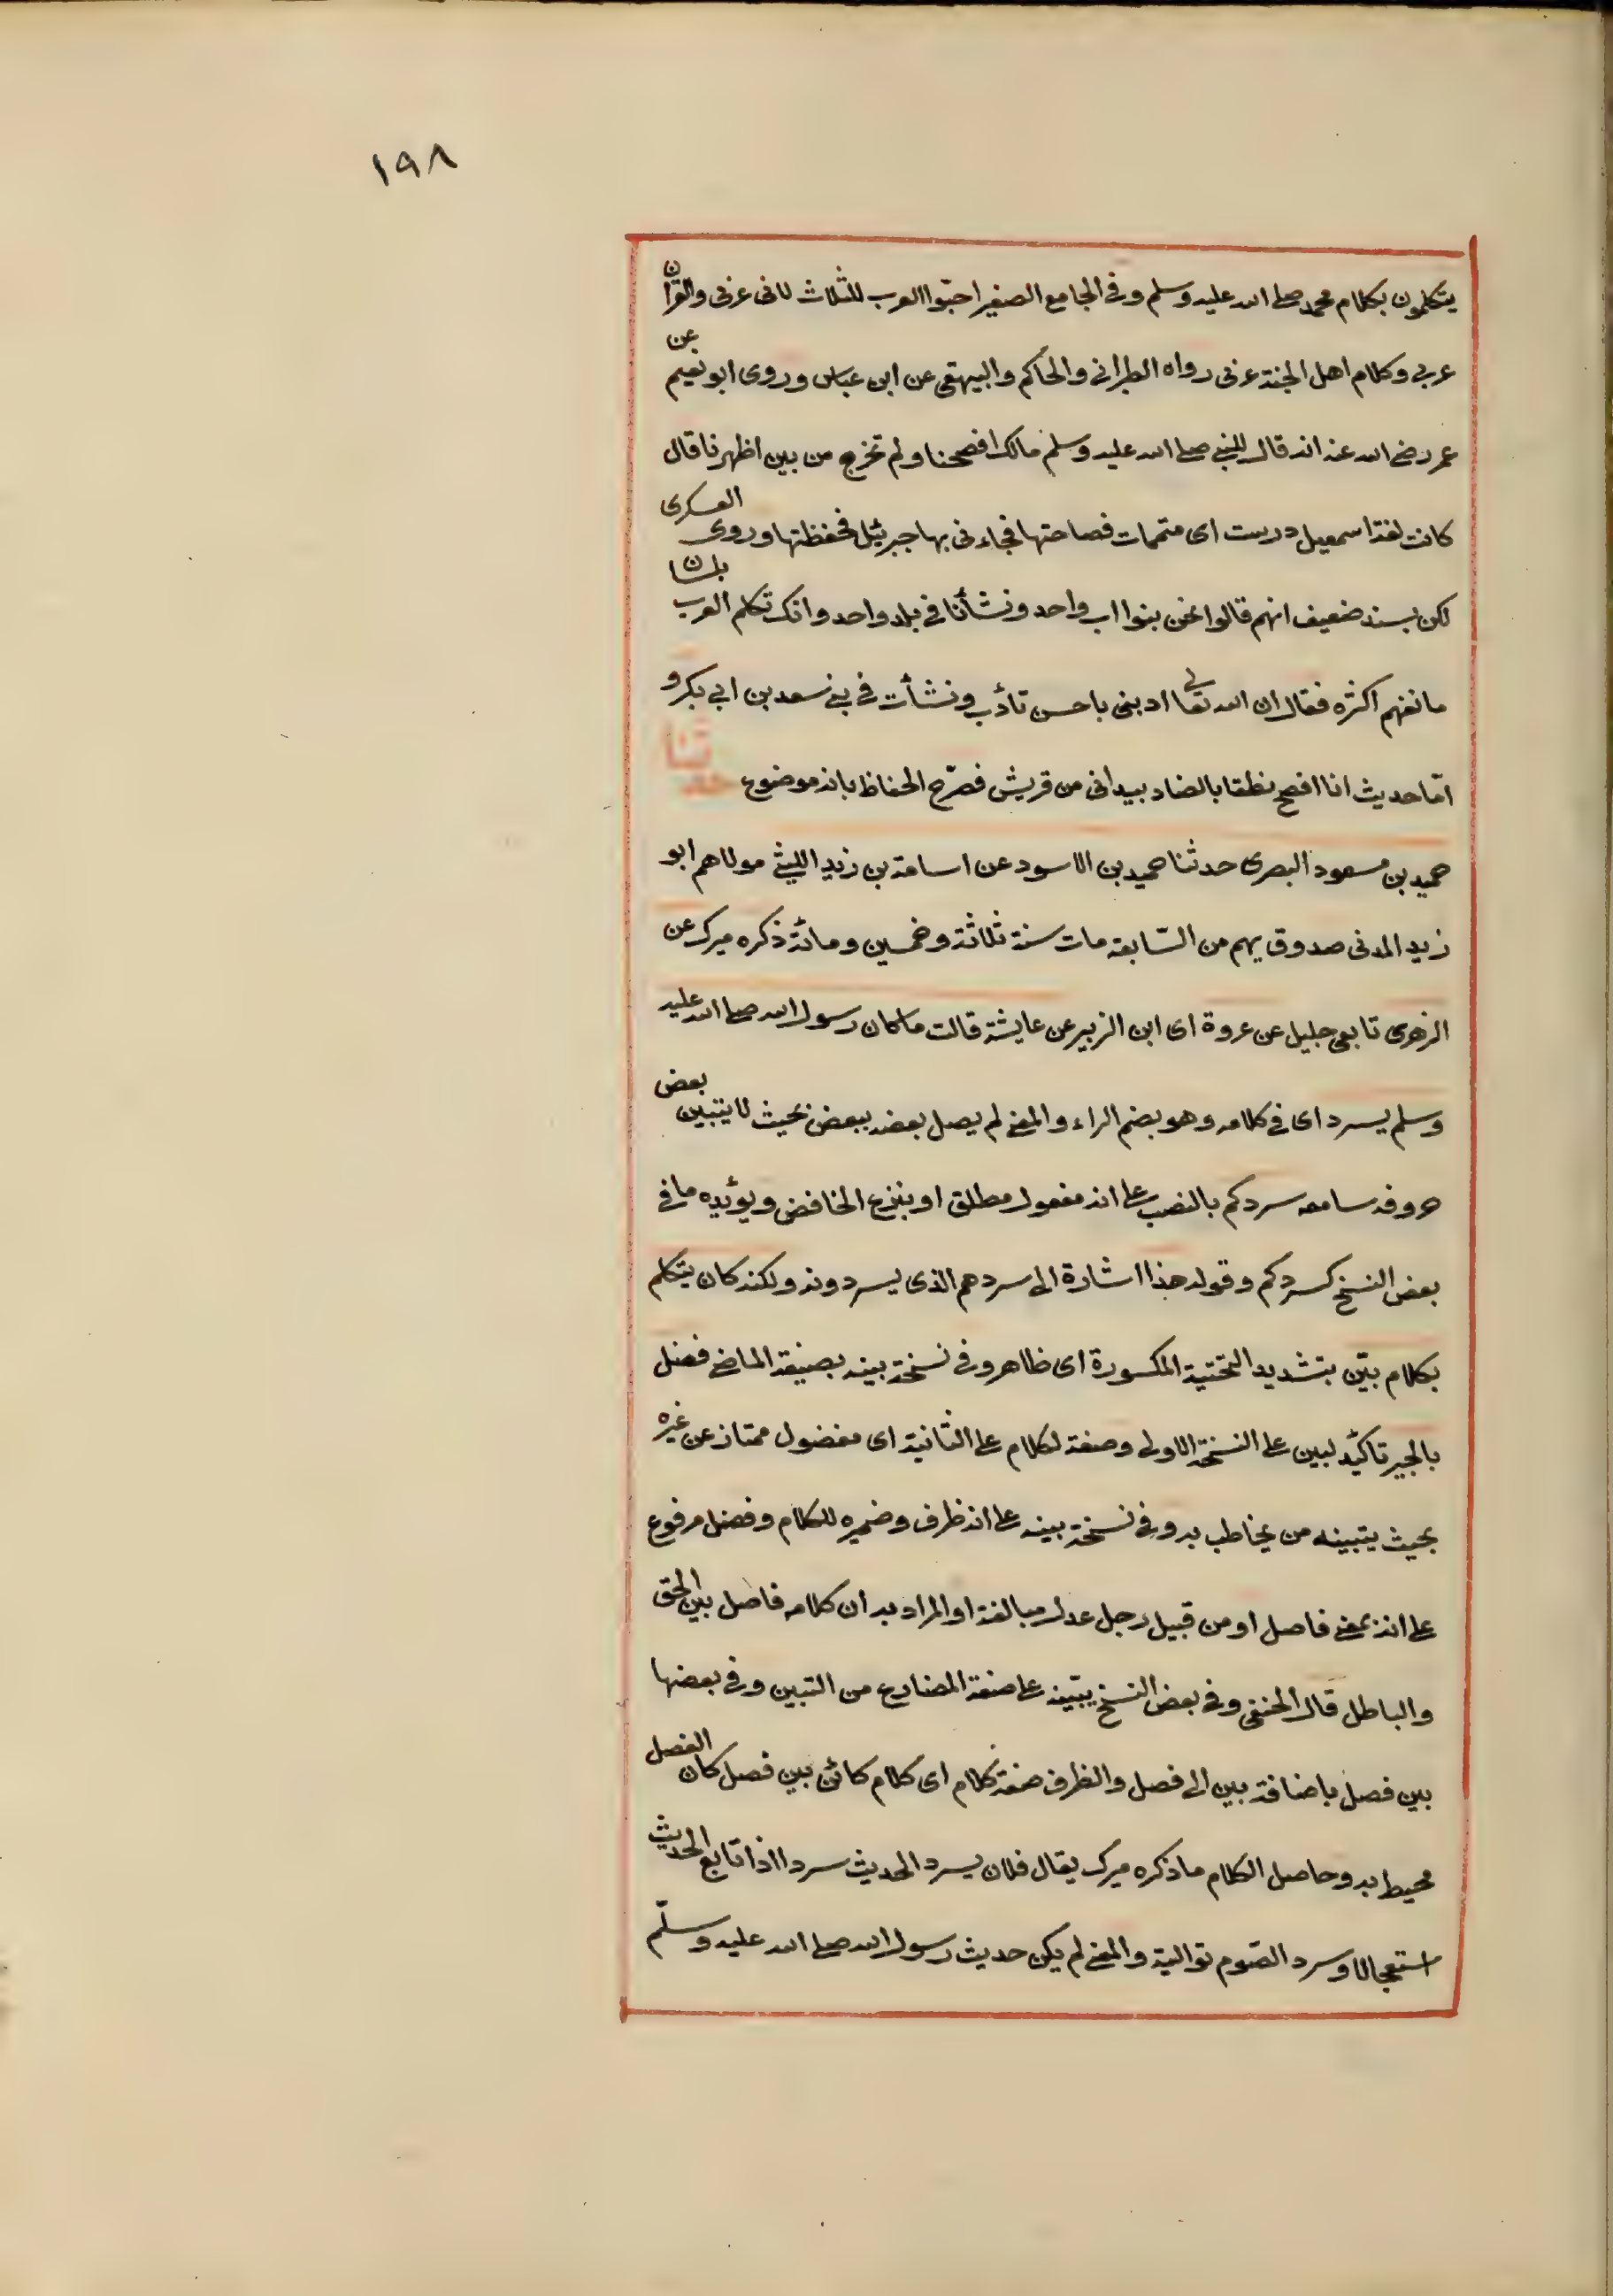 ١٩٨
يتكلمون بكلام محمد صلى الله عليه وسلم وفي الجامع الصغير احبّوا العرب للثلاث لانى عربى والقرآن
عربي وكلام اهل الجنة عربى رواه الطبرانى والحاكم والبيهقى عن ابن عباس وروى ابو نعيم عن
عمر رضى الله عنه انه قال للنبى صلى الله عليه وسلم مالك افصحنا ولم تخرج من بين اظهرنا قال
كانت لغة اسمعيل درست اى متممات فصاحتها فجاءنى بها جبرئيل فحفظتها وروى العسكرى
لكن بسند ضعيف انهم قالوا نحن بنوا اب واحد ونشأنا في بلد واحد وانك تكلم العرب بلسان
ما نفهم اكثره فقال ان الله تعالى ادبنى باحسن تأدّب ونشأت في بنى سعد بن ابي بكر و
امّا حديث انا افصح نطقا بالضاد بيد انى من قريش فصرّح الحفاظ بانه موضوع حدثنا
حميد بن مسعود البصرى حدثنا حميد بن الاسود عن اسامة بن زيد الليثى مولاهم ابو
زيد المدنى صدوق يهم من السّابعة مات سنة ثلاثة وخمسين ومائة ذكره ميرك عن
الزهرى تابعى جليل عن عروة اى ابن الزبير عن عايشة قالت ما كان رسول الله صلى الله عليه
وسلم يسرد اى في كلامه وهو بضم الراء والمعنى لم يصل بعضه ببعض بحيث لا يتبين بعض
حروفه سامعه سردكم بالنصب على انه مفعول مطلق او بنزع الخافض ويؤيده ما في
بعض النسخ كسردكم وقوله هذا اشارة الى سردهم الذى يسردونه ولكنه كان يتكلم
بكلام بيّن بتشديد التحتية المكسورة اى ظاهر وفي نسخة بينه بصيغة الماضى فصل
بالجر تاكيد لبين على النسخة الاولى وصفة لكلام على الثانية اى مفصول ممتاز عن غيره
بحيث يتبينه من يخاطب به وفي نسخة بينه على انه ظرف وضميره للكلام وفصل مرفوع
على انه بمعنى فاصل او من قبيل رجل عدل مبالغة او المراد به ان كلامه فاصل بين الحق
والباطل قال الحنفى وفي بعض النسخ يبيّنه على صفة المضارع من التبين وفي بعضها
بين فصل باضافة بين الى فصل والظرف صفة كلام اى كلام كائن بين فصل كان الفصل
محيط به وحاصل الكلام ما ذكره ميرك يقال فلان يسرد الحديث سردا اذا تابع الحديث
استعجالا وسرد الصّوم تواليه والمعنى لم يكن حديث رسول الله صلى الله عليه وسلّم